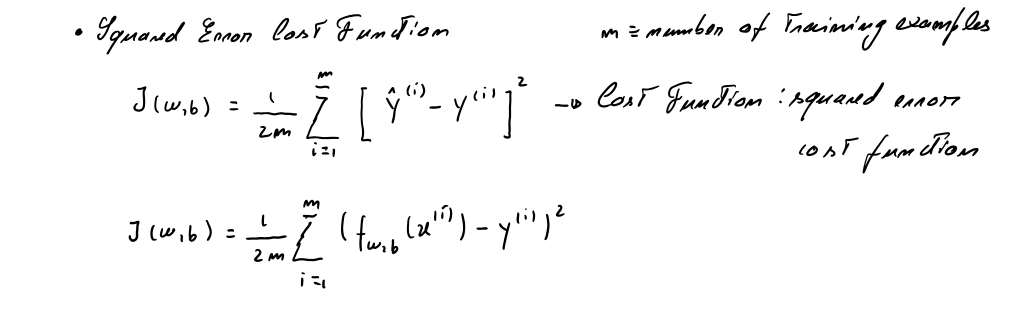 • Squared Error Cost Function m = number of Training examples
J(w,b) = 1/2m Σ_{i=1}^{m} [ ŷ^(i) - y^(i) ]^2 → Cost Function : squared error
cost function
J(w,b) = 1/2m Σ_{i=1}^{m} (f_{w,b}(x^(i)) - y^(i))^2